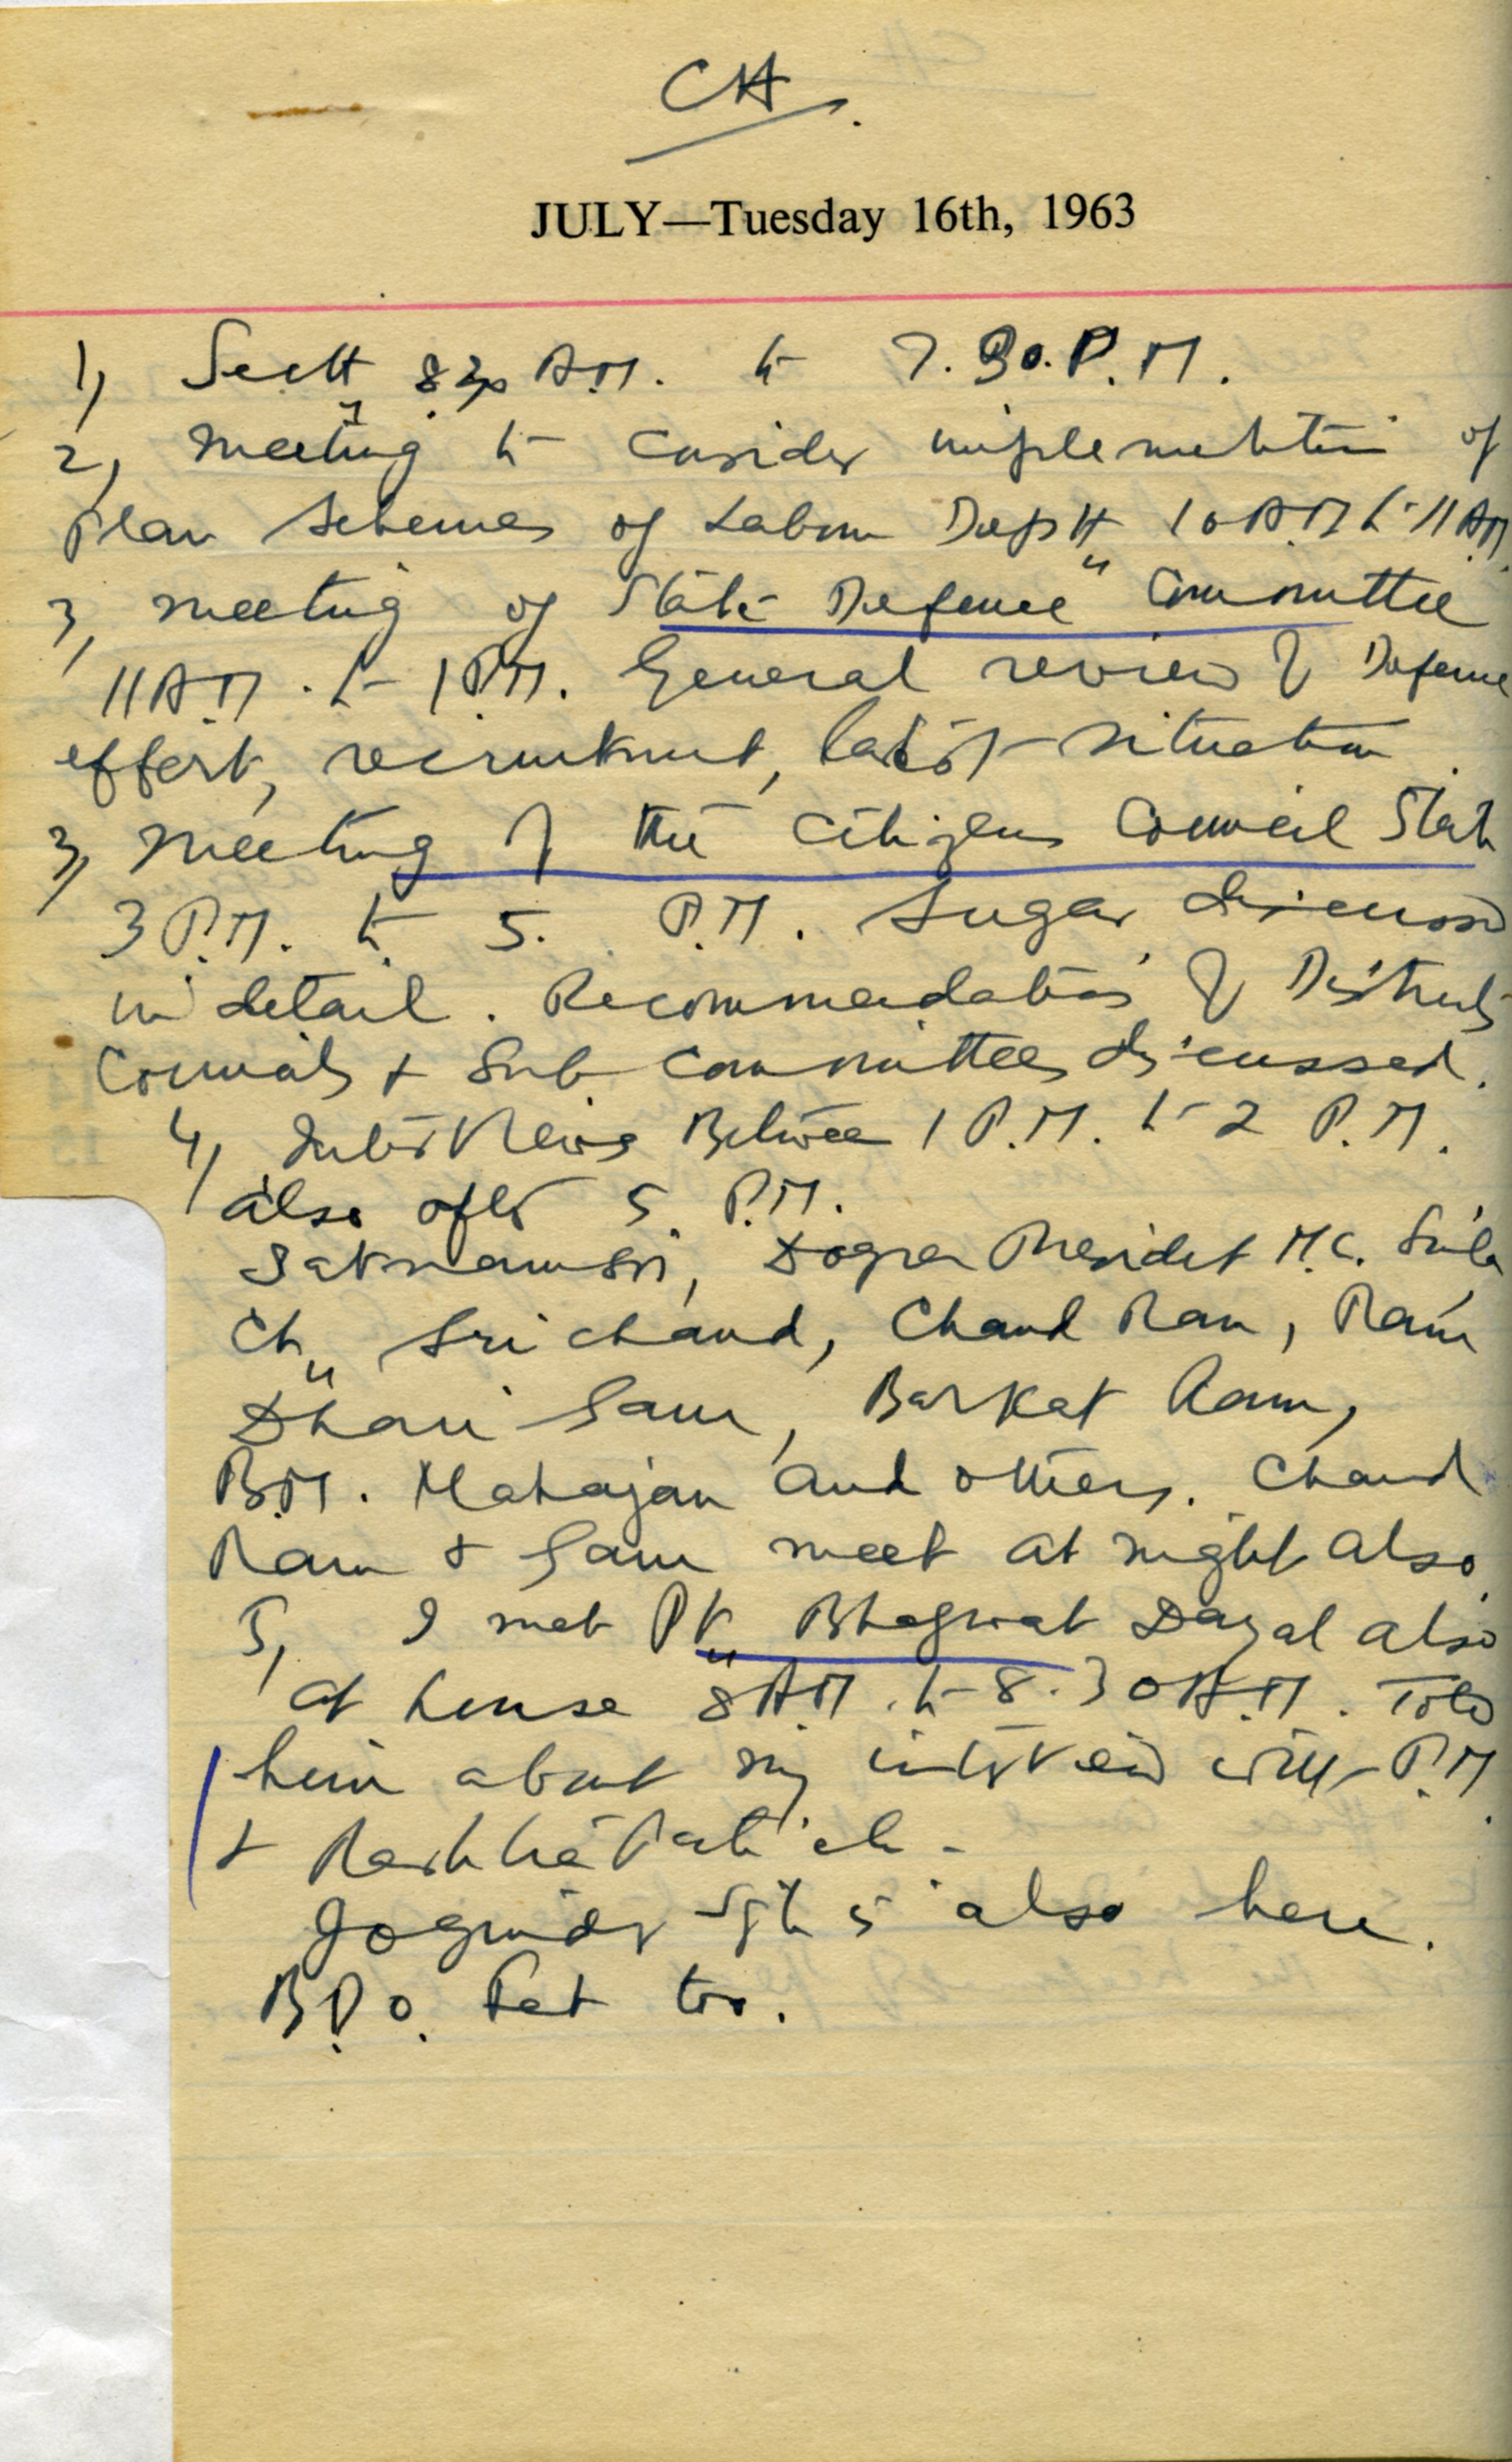 CH.
JULY—Tuesday 16th, 1963
1, Sectt 8.30 A.M. to 7.30. P.M.
2, Meeting to consider implementation of
Plan Schemes of Labour Deptt 10 A.M to 11 AM.
3, Meeting of State Defence Committee
11 A.M. to 1 P.M. General review of Defence
effort, recruitment, latest situation
3, Meeting of the Citizens Council State
3 P.M. to 5. P.M. Sugar discussed
in detail. Recommendations of Districts
Councils + Sub Committees discussed.
4, Interviews Between 1 P.M. to 2 P.M.
also after 5. P.M.
Dogra President M.C. Simla
Ch. Sri chand, Chand Ram, Ram
Dhari Barkat Ram,
B.M. Mahajan and others. Chand
Ram + meet at night also.
5, I met Pt. Bhagwat Dayal also
at house 8 AM. to 8.30 A.M. Told
him about my interview with P.M.
+ Rashtrapati
Joginder Sgh is also here.
B.P.O. too.